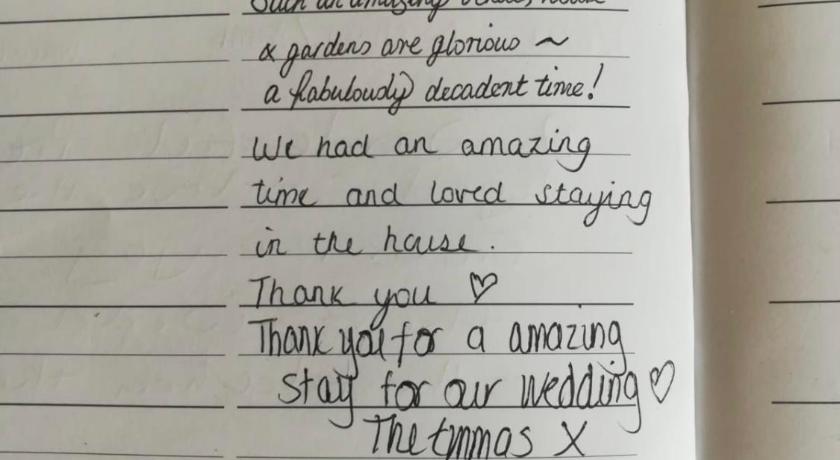 Such an amazing
& gardens are glorious ~
a fabulously decadent time!
We had an amazing
time and loved staying
in the house.
Thank you ♡
Thank you for a amazing
stay for our wedding ♡
X